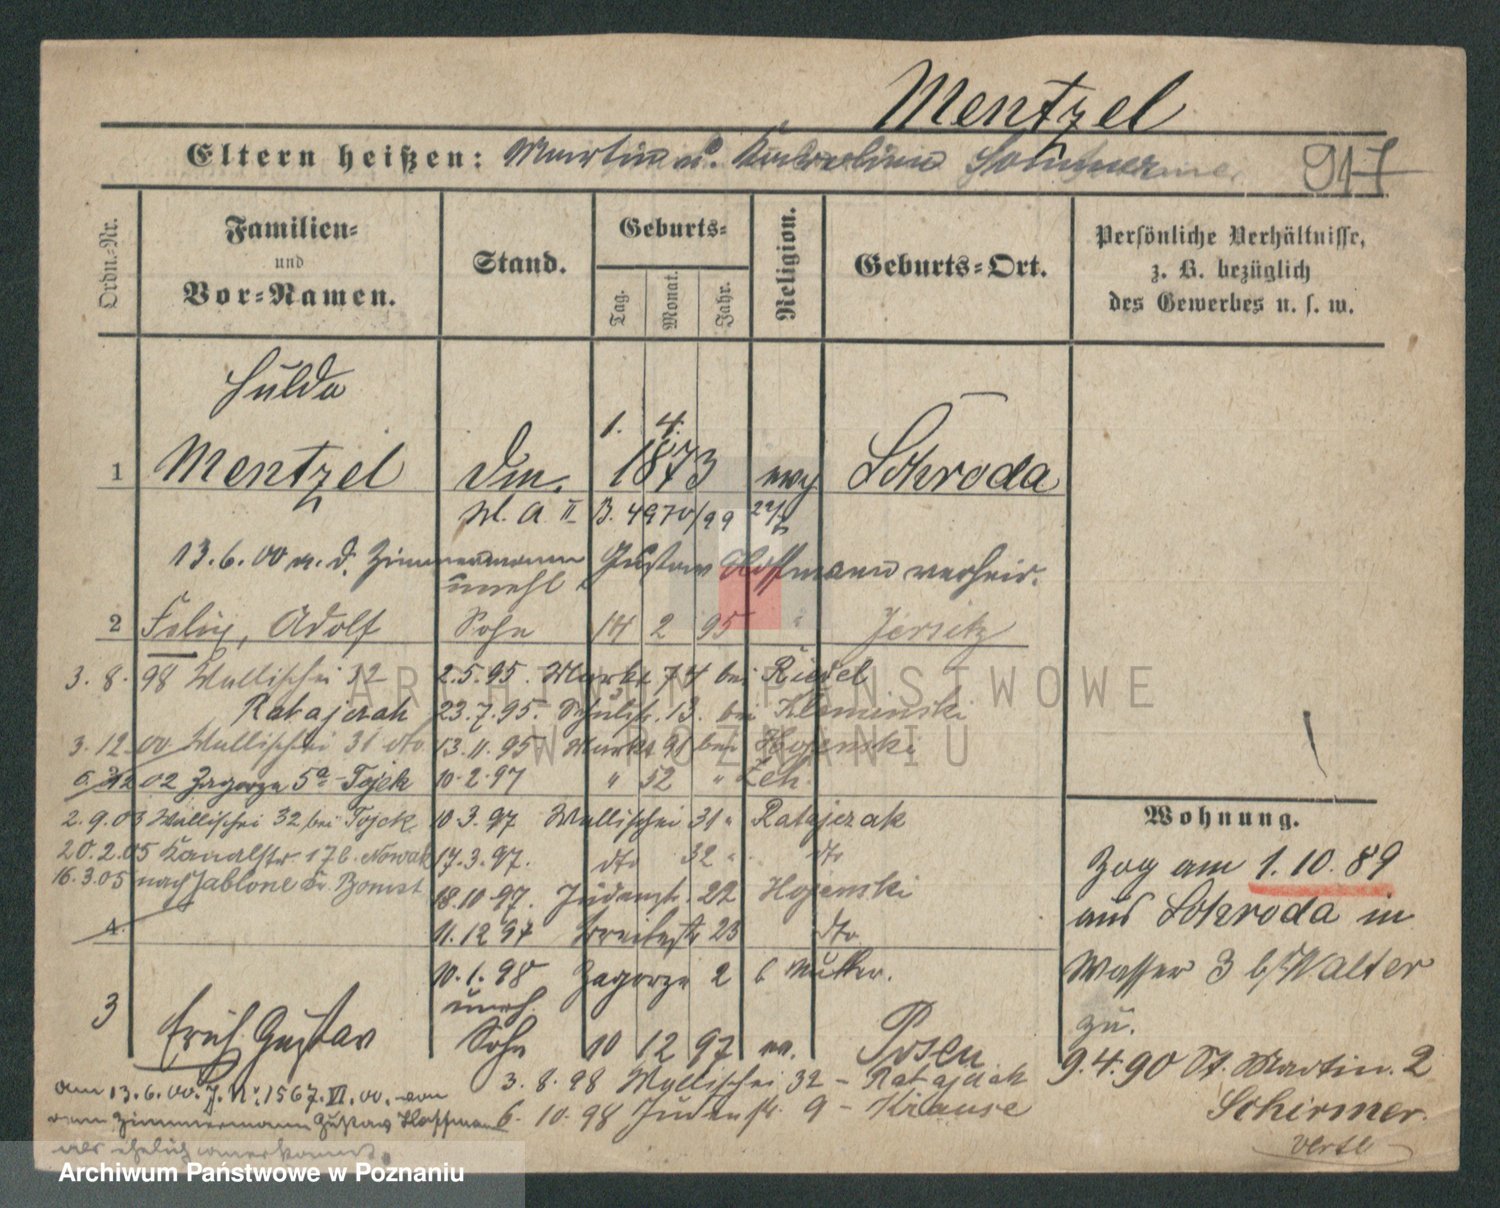 Mentzel
Eltern heißen: Martin u. Sommer 917
Ordn.-Nr.
Familien-
und
Vor-Namen.
Stand.
Geburts-
Tag.
Monat.
Jahr.
Religion.
Geburts-Ort.
Persönliche Verhältnisse,
z. B. bezüglich
des Gewerbes u. s. w.
Hulda
1. 4.
1 Mentzel 1873 evg Schroda
II B. 4970/99
13.6.00 m. d. Zimmermann Gustav Hoffmann verheir.
unehl.
2 Felix, Adolf Sohn 14 2 95 " Jersitz
3. 8. 98 Wallischei 32 2.5.95. Markt 74 bei Riedel
Ratajczak 23.7.95. Schulstr. 13. bei Kleminski
3. 12. 00 Wallischei 31 dto 13.11.95 Markt 91 bei Hojenski
02 Zagorze 5a Tojek 10.2.97 " 52 " Zeh.
2.9.03 Wallischei 32 bei Tojek 10.3.97 Wallischei 31 " Ratajczak
20.2.05 Kanalstr. 17b. Nowak 17.3.97. dto 32 " dto
16.3.05 nach Jablone Kr. Bomst 18.10.97. Judenstr. 22 Hojenski
4. 11.12.97 Breitestr 23 dto
10.1.98 Zagorze 2 b Mutter.
3 Erich Gustav
uneh.
Sohn 10 12 97 ev. Posen
3. 8. 98 Wallischei 32 - Ratajczak
6. 10. 98 Judenstr. 9 - Krause
am 13.6.00. J. Nr. 1567. VI. 00. von
dem Zimmermann Gustav Hoffmann
als ehelich anerkannt.
Wohnung.
Zog am 1.10.89
aus Schroda in
Wasser 3 b/Walter
zu.
9.4.90 St. Martin. 2
Schirmer.
verte
ARCHIWUM PAŃSTWOWE
W POZNANIU
Archiwum Państwowe w Poznaniu